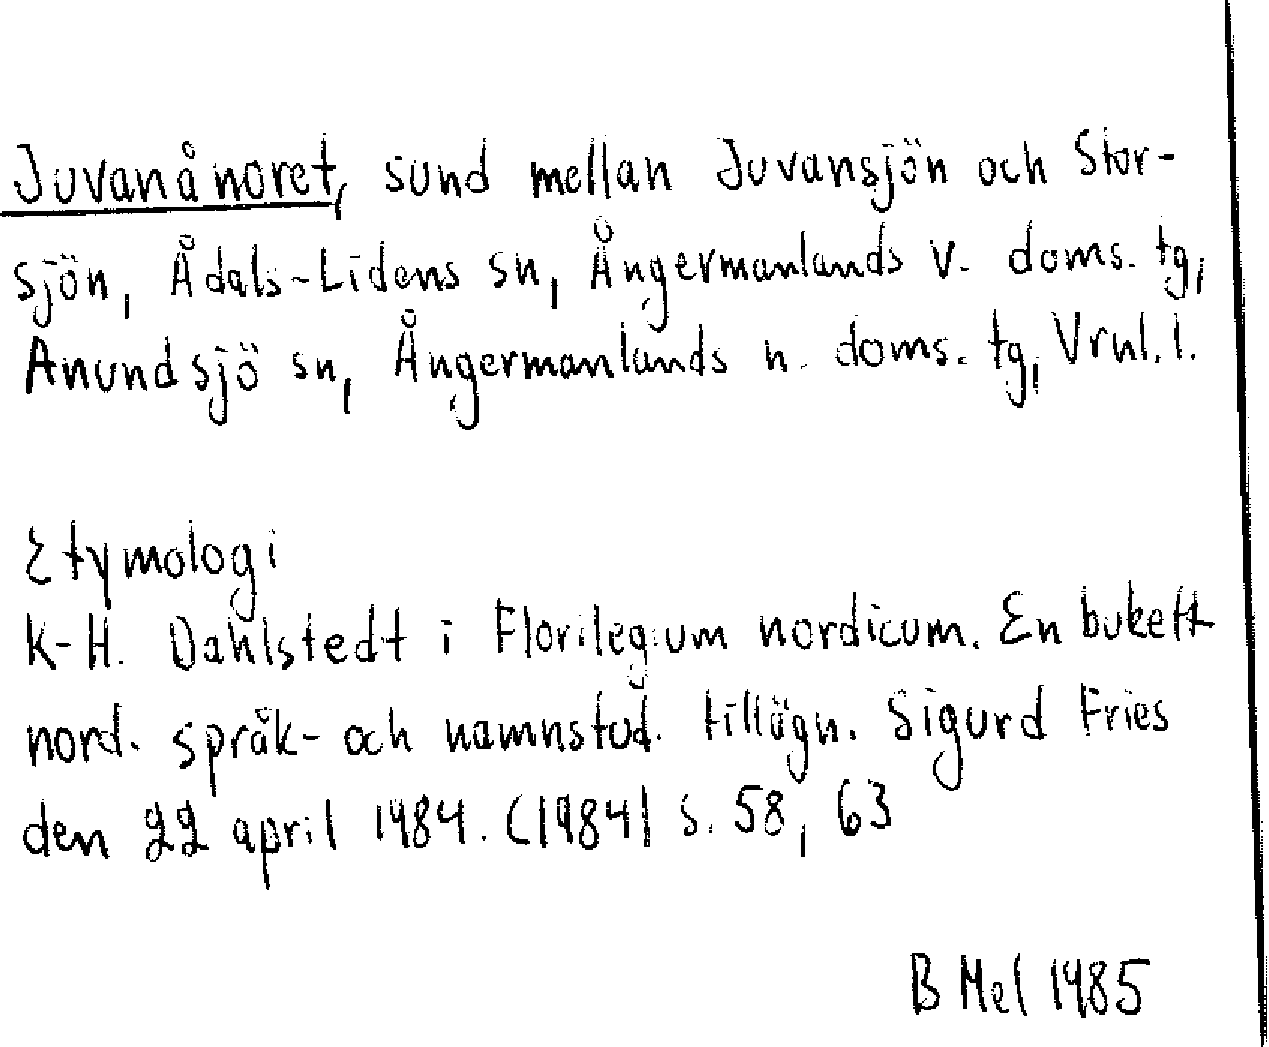 Juvanånoret, sund mellan Juvansjön och Stor-
sjön, Ådals-Lidens sn, Ångermanlands v. doms. tg,
Anundsjö sn, Ångermanlands n. doms. tg, Vrnl. l.
Etymologi
K-H. Dahlstedt i Florilegium nordicum. En bukett
nord. språk- och namnstud. tillägn. Sigurd Fries
den 22 april 1984. (1984) s. 58, 63
B Mel 1985